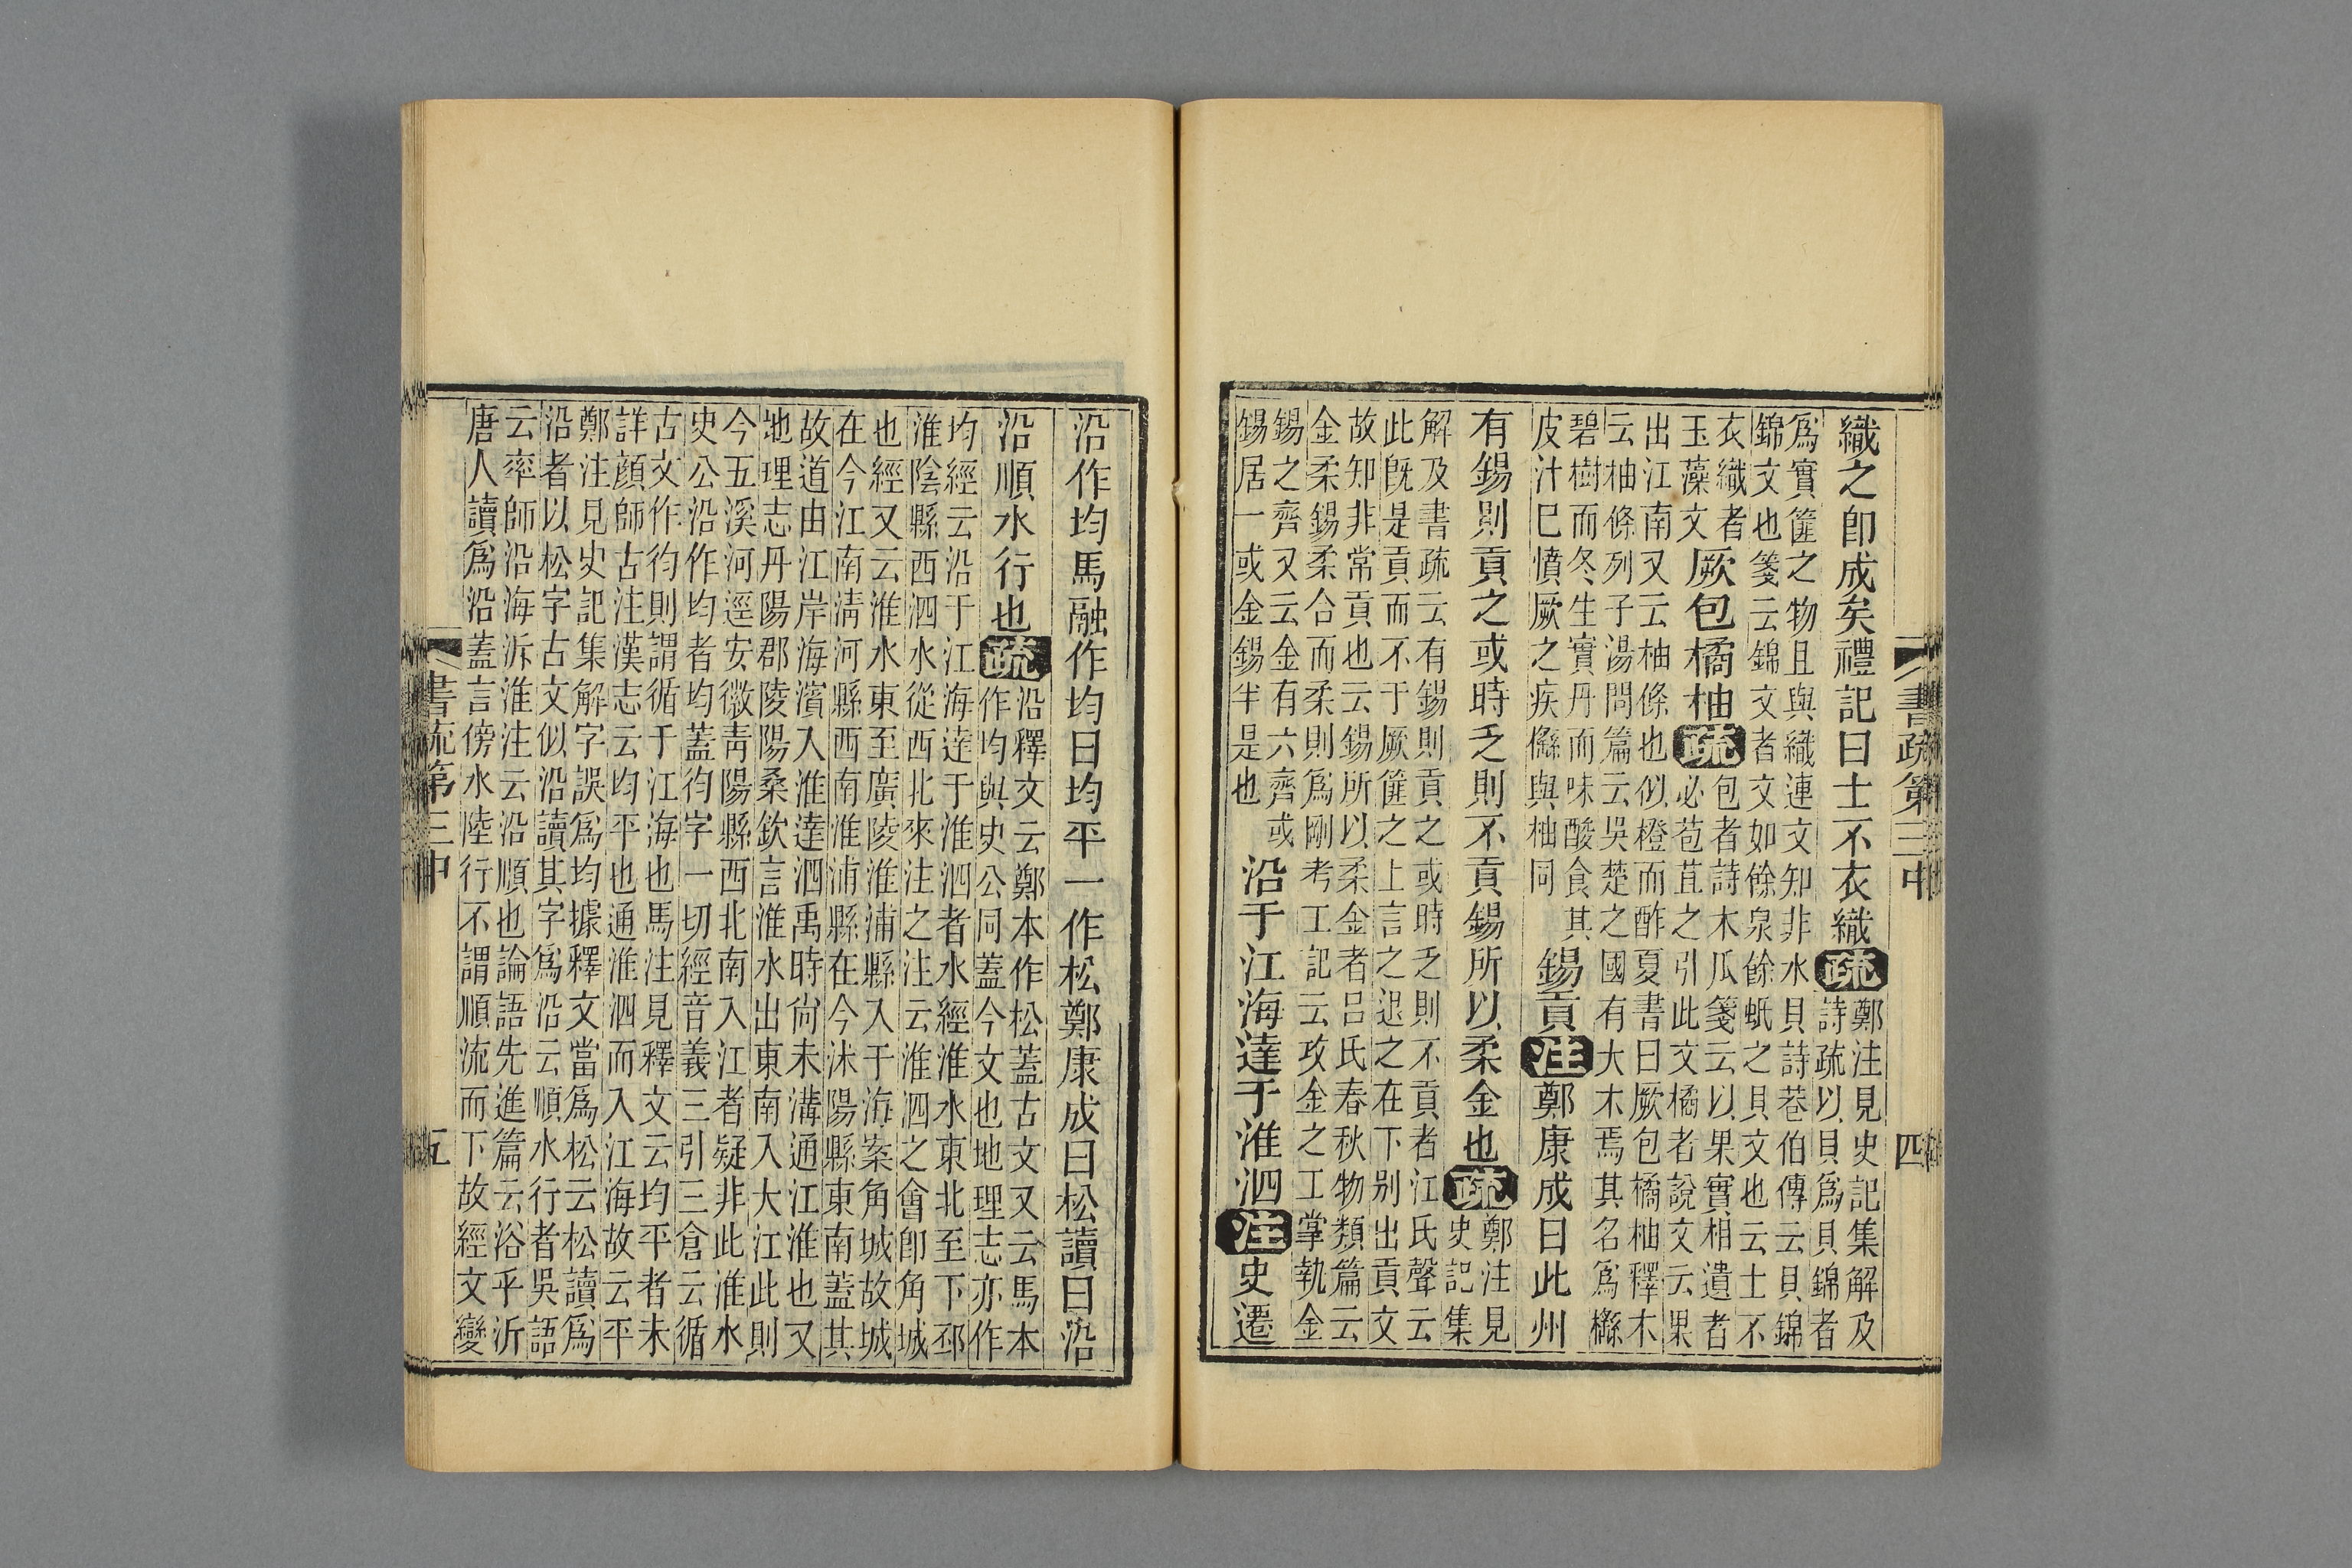 書疏第三中
四
織之卽成矣禮記曰士不衣織疏
鄭注見史記集解及
詩疏以貝爲貝錦者
爲實篚之物且與織連文知非水貝詩巷伯傳云貝錦
錦文也箋云錦文者文如餘泉餘蚳之貝文也云士不
衣織者
玉藻文
厥包橘柚疏
包者詩木瓜箋云以果實相遺者
必苞苴之引此文橘者說文云果
出江南又云柚條也似橙而酢夏書曰厥包橘柚釋木
云柚條列子湯問篇云吳楚之國有大木焉其名爲櫾
碧樹而冬生實丹而味酸食其
皮汁巳憤厥之疾櫾與柚同
錫貢注鄭康成曰此州
有錫則貢之或時乏則不貢錫所以柔金也疏
鄭注見
史記集
解及書疏云有錫則貢之或時乏則不貢者江氏聲云
此旣是貢而不于厥篚之上言之退之在下别出貢文
故知非常貢也云錫所以柔金者呂氏春秋物類篇云
金柔錫柔合而柔則爲剛考工記云攻金之工掌執金
錫之齊又云金有六齊或
錫居一或金錫半是也
沿于江海達于淮泗注史遷
沿作均馬融作均曰均平一作松鄭康成曰松讀曰沿
沿順水行也疏
沿釋文云鄭本作松蓋古文又云馬本
作均與史公同蓋今文也地理志亦作
均經云沿于江海達于淮泗者水經淮水東北至下邳
淮陰縣西泗水從西北來注之注云淮泗之會卽角城
也經又云淮水東至廣陵淮浦縣入于海案角城故城
在今江南淸河縣西南淮浦縣在今沭陽縣東南蓋其
故道由江岸海濱入淮達泗禹時尙未溝通江淮也又
地理志丹陽郡陵陽桑欽言淮水出東南入大江此則
今五溪河逕安徽靑陽縣西北南入江者疑非此淮水
史公沿作均者均蓋袀字一切經音義三引三倉云循
古文作袀則謂循于江海也馬注見釋文云均平者未
詳顔師古注漢志云均平也通淮泗而入江海故云平
鄭注見史記集解字誤爲均據釋文當爲松云松讀爲
沿者以松字古文似沿讀其字爲沿云順水行者吳語
云率師沿海泝淮注云沿順也論語先進篇云浴乎沂
唐人讀爲沿蓋言傍水陸行不謂順流而下故經文變
書疏第三中
五